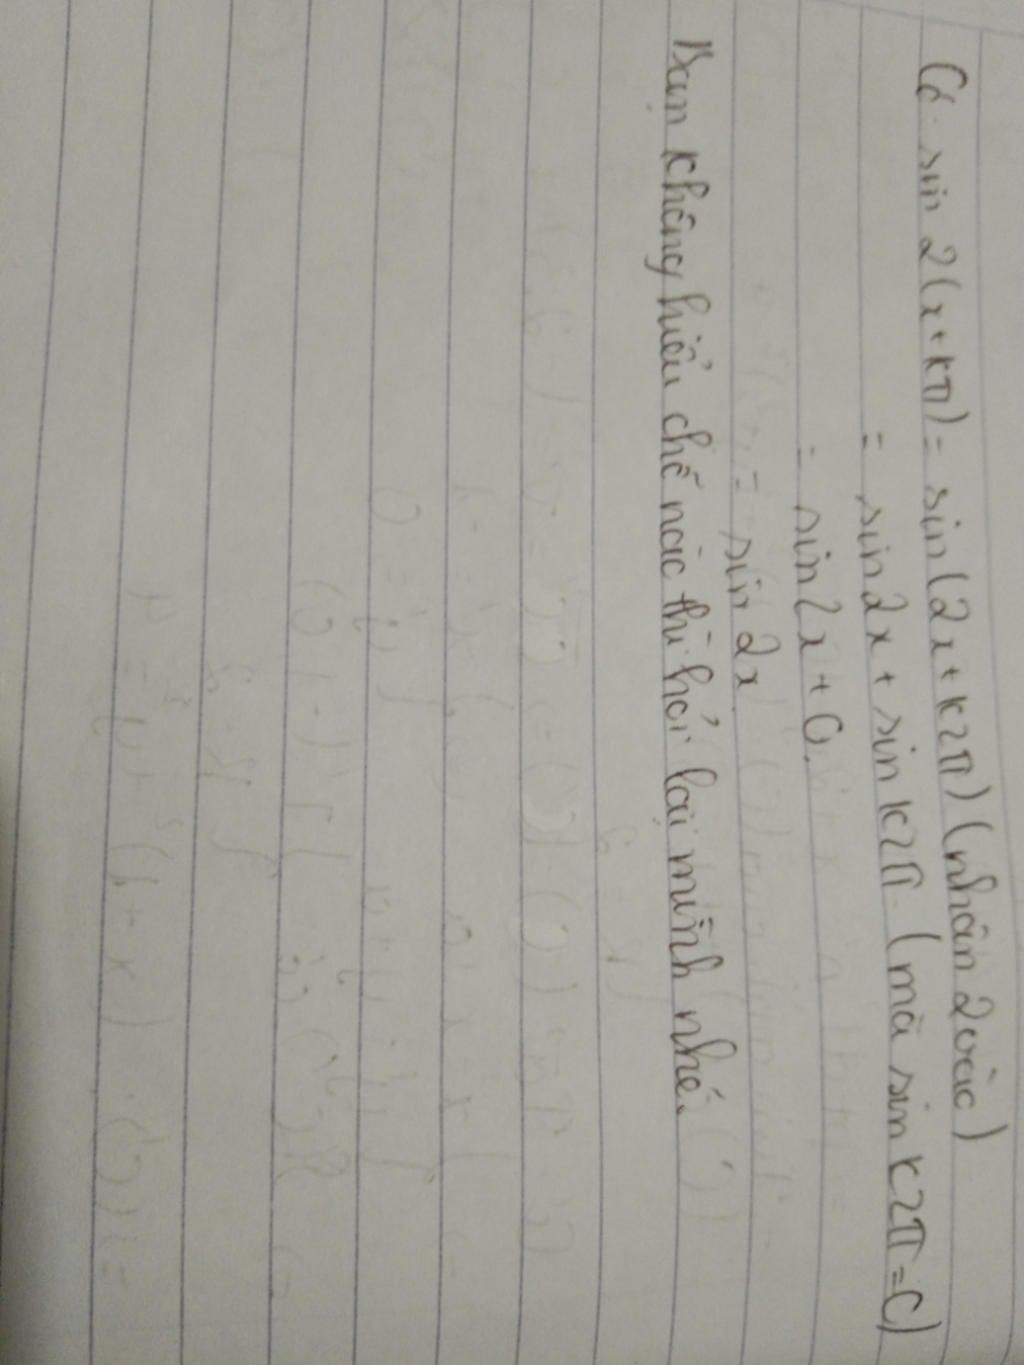 Có sin 2(x+kπ) = sin(2x+k2π) (nhân 2 vào)
= sin2x + sin k2π. (mà sin k2π=0)
= sin2x + 0.
= sin 2x
Bạn không hiểu chỗ nào thì hỏi lại mình nhé.